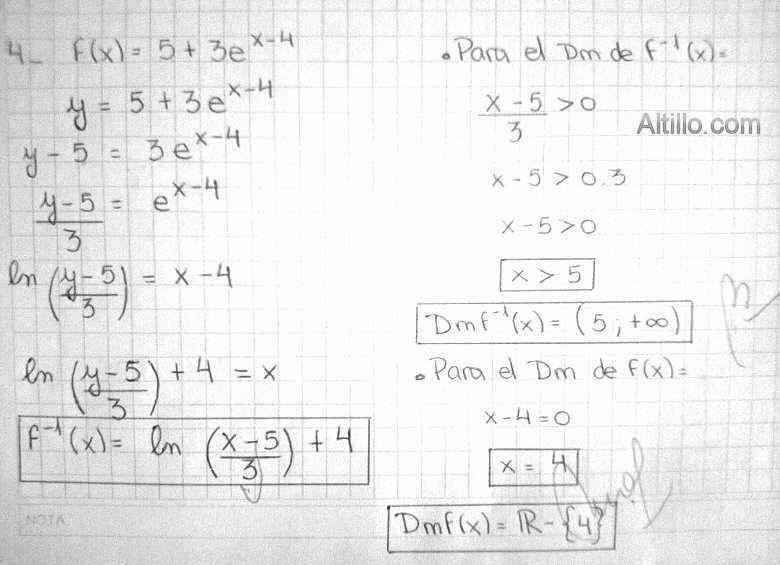 4- F(x) = 5 + 3e^(x-4)
y = 5 + 3e^(x-4)
y - 5 = 3e^(x-4)
(y-5)/3 = e^(x-4)
ln ((y-5)/3) = x - 4
ln ((y-5)/3) + 4 = x
F⁻¹(x) = ln ((x-5)/3) + 4
NOTA
• Para el Dm de F⁻¹(x)=
(x-5)/3 > 0
Altillo.com
x - 5 > 0.3
x - 5 > 0
x > 5
DmF⁻¹(x) = (5; +∞)
• Para el Dm de F(x)=
x - 4 = 0
x = 4
DmF(x) = ℝ - {4}